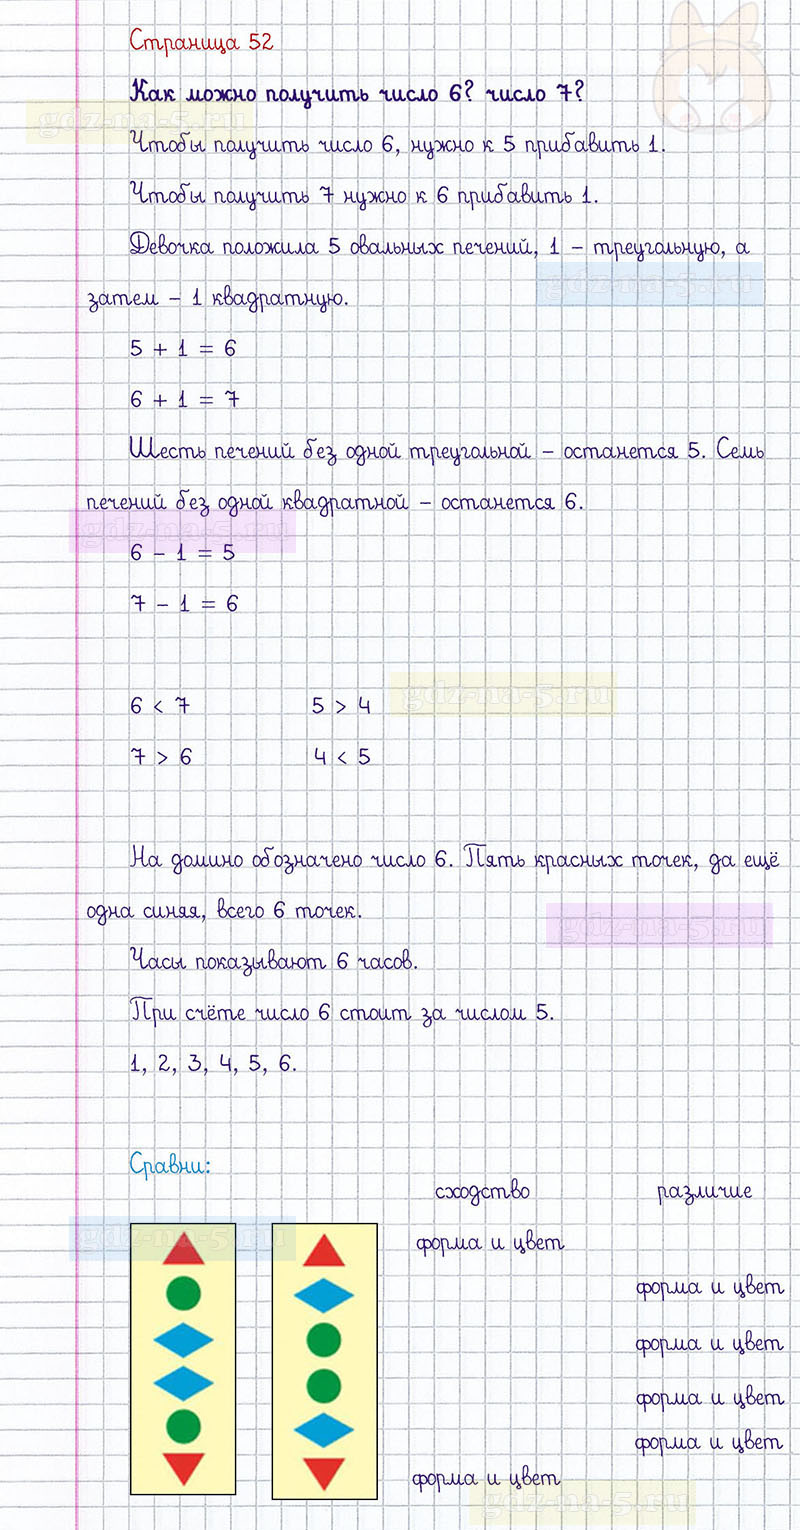 Страница 52
Как можно получить число 6? число 7?
gdz-na-5.ru
Чтобы получить число 6, нужно к 5 прибавить 1.
Чтобы получить 7 нужно к 6 прибавить 1.
Девочка положила 5 овальных печений, 1 – треугольную, а
gdz-na-5.ru
затем – 1 квадратную.
5 + 1 = 6
6 + 1 = 7
Шесть печений без одной треугольной – останется 5. Семь
печений без одной квадратной – останется 6.
gdz-na-5.ru
6 – 1 = 5
7 – 1 = 6
gdz-na-5.ru
6 < 7 5 > 4
7 > 6 4 < 5
На домино обозначено число 6. Пять красных точек, да ещё
одна синяя, всего 6 точек.
gdz-na-5.ru
Часы показывают 6 часов.
При счёте число 6 стоит за числом 5.
1, 2, 3, 4, 5, 6.
Сравни:
сходство различие
gdz-na-5.ru
форма и цвет
форма и цвет
форма и цвет
форма и цвет
форма и цвет
форма и цвет
gdz-na-5.ru